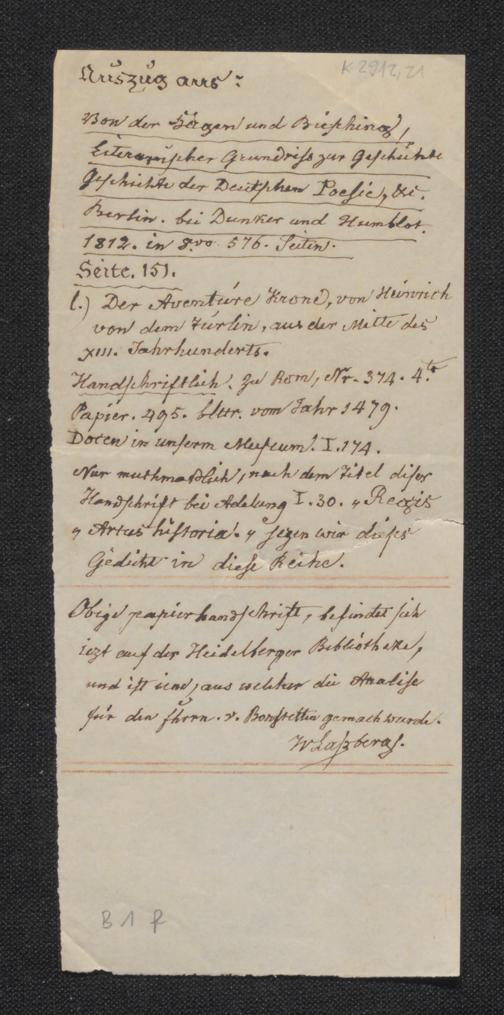 K 2912,21
Auszug aus:
Von der Hagen und Büsching,
Literarischer Grundriss zur Geschichte
Geschichte der Deutschen Poesie, &c.
Berlin. bei Dunker und Humblot.
1812. in 8.vo 576. Seiten.
Seite. 151.
l.) Der Aventüre Krone, von Heinrich
von dem Türlin, aus der Mitte des
XIII. Jahrhunderts.
Handschriftlich. Zu Rom, Nr. 374. 4.to
Papier. 495. blttr. vom Jahr 1479.
Docen in unserm Museum. I. 174.
Nur muthmaßlich, nach dem Titel diser
Handschrift bei Adelung I. 30. „Regis
„ Artus historia. „ sezen wir dieses
Gedicht in diese Reihe.
Obige papierhandschrift, befindet sich
iezt auf der Heidelberger Bibliotheke,
und ist iene, aus welcher die Analise
für den fhrrn. v. Bonstetten gemach wurde.
Laszberg.
B 1